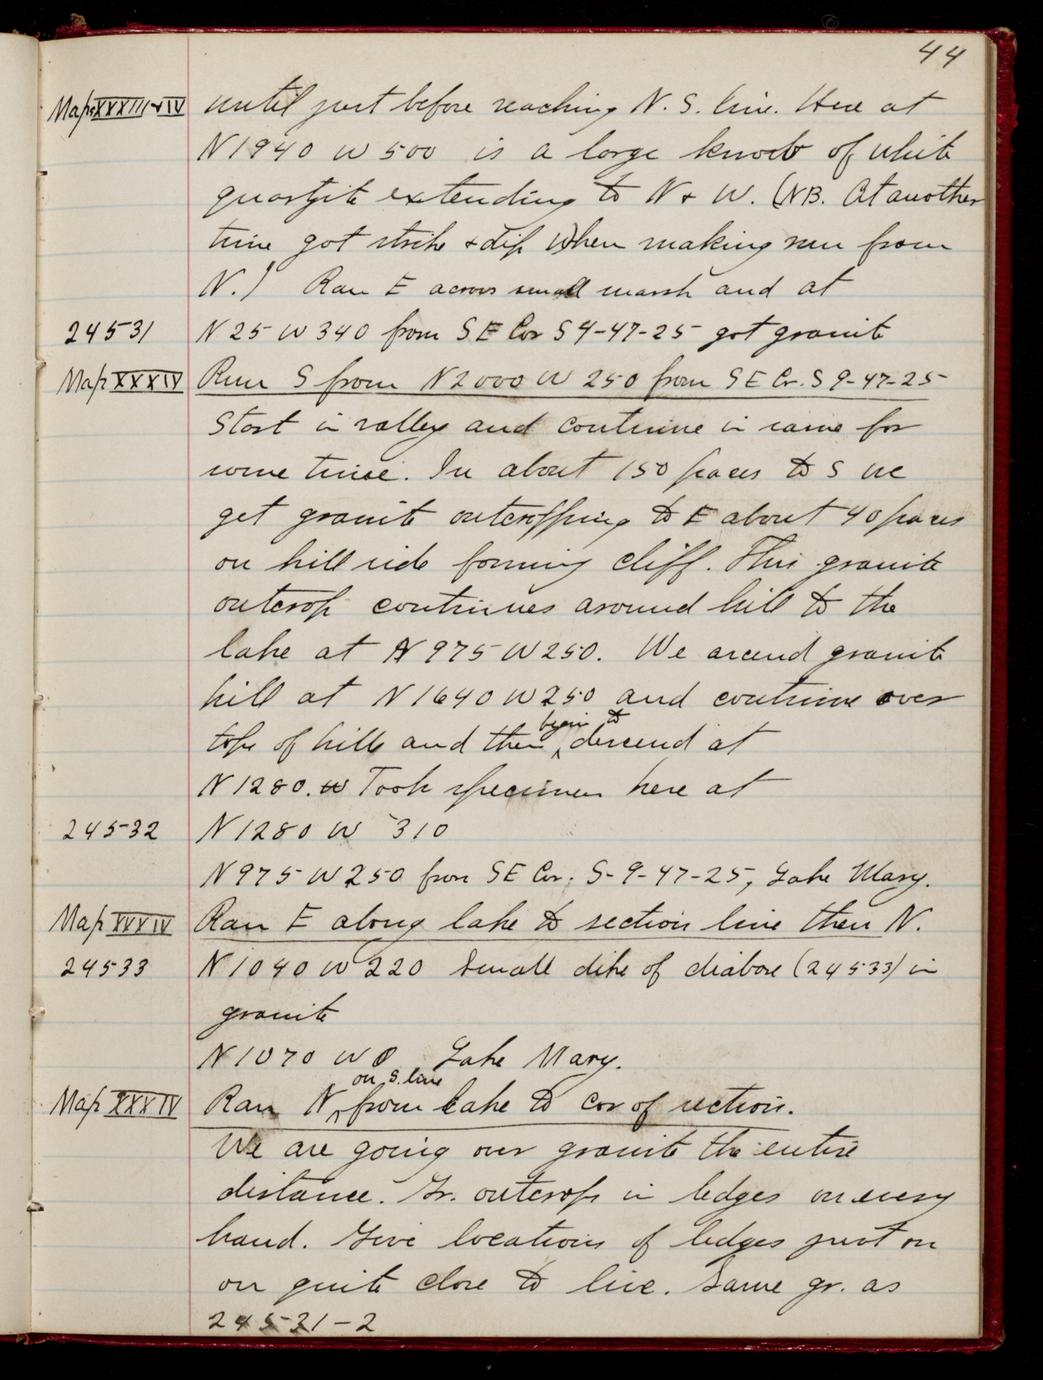 44
Maps XXXIII + IV until just before reaching N. S. line. Here at
N 1940 W 500 is a large knob of white
quartzite extending to N + W. (NB. At another
time got strike + dip when making run from
N.) Ran E across small marsh and at
24531 N 25 W 340 from SE Cor S 4-47-25 got granite
Map XXXIV Run S from N 2000 W 250 from SE Cr. S 9-47-25
Start in valley and continue in same for
some time. In about 150 paces to S we
get granite outcropping to E about 40 paces
on hill side forming cliff. This granite
outcrop continues around hill to the
lake at N 975 W 250. We ascend granite
hill at N 1640 W 250 and continue over
top of hills and then begin to descend at
N 1280. W Took specimen here at
24532 N 1280 W 310
N 975 W 250 from SE Cor. S-9-47-25, Lake Mary.
Map XXXIV Ran E along lake to section line then N.
24533 N 1040 W 220 Small dike of diabase (24533) in
granite
N 1070 W 0 Lake Mary.
Map XXXIV Ran N on S. line from Lake to cor of section.
We are going over granite the entire
distance. Gr. outcrops in ledges on every
hand. Give locations of ledges just on
or quite close to line. Same gr. as
24531-2